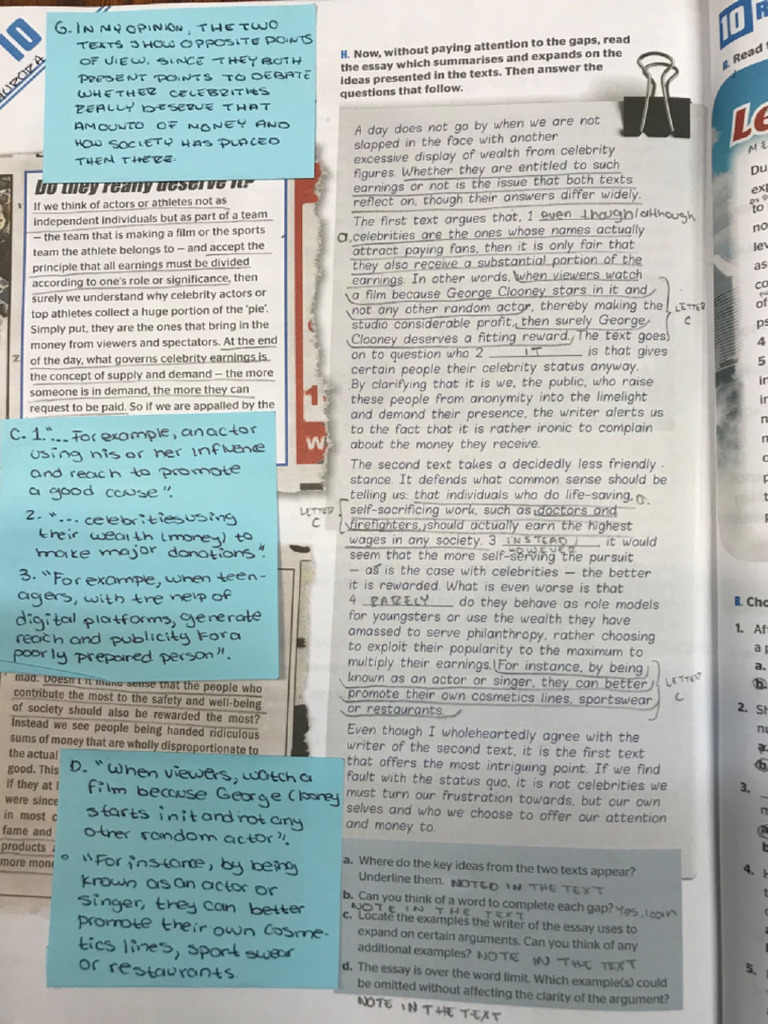 10
AURORA
G. IN MY OPINION, THE TWO
TEXTS SHOW OPPOSITE POINTS
OF VIEW, SINCE THEY BOTH
PRESENT POINTS TO DEBATE
WHETHER CELEBRITIES
REALLY DESERVE THAT
AMOUNTO OF MONEY AND
HOW SOCIETY HAS PLACED
THEN THERE.
Do they really deserve it?
1 If we think of actors or athletes not as
independent individuals but as part of a team
– the team that is making a film or the sports
team the athlete belongs to – and accept the
principle that all earnings must be divided
according to one's role or significance, then
surely we understand why celebrity actors or
top athletes collect a huge portion of the 'pie'.
Simply put, they are the ones that bring in the
money from viewers and spectators. At the end
2 of the day, what governs celebrity earnings is
the concept of supply and demand – the more
someone is in demand, the more they can
request to be paid. So if we are appalled by the
C. 1. "... For example, an actor
using his or her influence
and reach to promote
a good cause".
2. "... celebrities using
their wealth (money) to
make major donations".
3. "For example, when teen-
agers, with the help of
digital platforms, generate
reach and publicity for a
poorly prepared person".
mad. Doesn't it make sense that the people who
contribute the most to the safety and well-being
of society should also be rewarded the most?
Instead we see people being handed ridiculous
sums of money that are wholly disproportionate to
the actual
good. This
if they at l
were since
in most c
fame and
products
more mone
D. "When viewers, watch a
film because George Clooney
starts in it and not any
other random actor".
° "For instance, by being
known as an actor or
singer, they can better
promote their own cosme-
tics lines, sport swear
or restaurants.
H. Now, without paying attention to the gaps, read
the essay which summarises and expands on the
ideas presented in the texts. Then answer the
questions that follow.
A day does not go by when we are not
slapped in the face with another
excessive display of wealth from celebrity
figures. Whether they are entitled to such
earnings or not is the issue that both texts
reflect on, though their answers differ widely.
The first text argues that, 1 even though/although
a. celebrities are the ones whose names actually
attract paying fans, then it is only fair that
they also receive a substantial portion of the
earnings. In other words, when viewers watch
a film because George Clooney stars in it and
not any other random actor, thereby making the
studio considerable profit, then surely George
Clooney deserves a fitting reward. The text goes
LETTER
C
on to question who 2 IT is that gives
certain people their celebrity status anyway.
By clarifying that it is we, the public, who raise
these people from anonymity into the limelight
and demand their presence, the writer alerts us
to the fact that it is rather ironic to complain
about the money they receive.
The second text takes a decidedly less friendly
stance. It defends what common sense should be
telling us: that individuals who do life-saving, a.
self-sacrificing work, such as doctors and
firefighters, should actually earn the highest
LETTER
C
wages in any society. 3 INSTEAD/ it would
HOWEVER
seem that the more self-serving the pursuit
– as is the case with celebrities – the better
it is rewarded. What is even worse is that
4 RARELY do they behave as role models
for youngsters or use the wealth they have
amassed to serve philanthropy, rather choosing
to exploit their popularity to the maximum to
multiply their earnings. For instance, by being
known as an actor or singer, they can better
promote their own cosmetics lines, sportswear
or restaurants.
LETTER
C
Even though I wholeheartedly agree with the
writer of the second text, it is the first text
that offers the most intriguing point. If we find
fault with the status quo, it is not celebrities we
must turn our frustration towards, but our own
selves and who we choose to offer our attention
and money to.
a. Where do the key ideas from the two texts appear?
Underline them. NOTED IN THE TEXT
b. Can you think of a word to complete each gap? Yes, I can
NOTE IN THE TEXT
c. Locate the examples the writer of the essay uses to
expand on certain arguments. Can you think of any
additional examples? NOTE IN THE TEXT
d. The essay is over the word limit. Which example(s) could
be omitted without affecting the clarity of the argument?
NOTE IN THE TEXT
10
Read
Le
Du
B. Cho
1. Af
a p
a.
b.
2.
a.
b.
3.
4.
5.